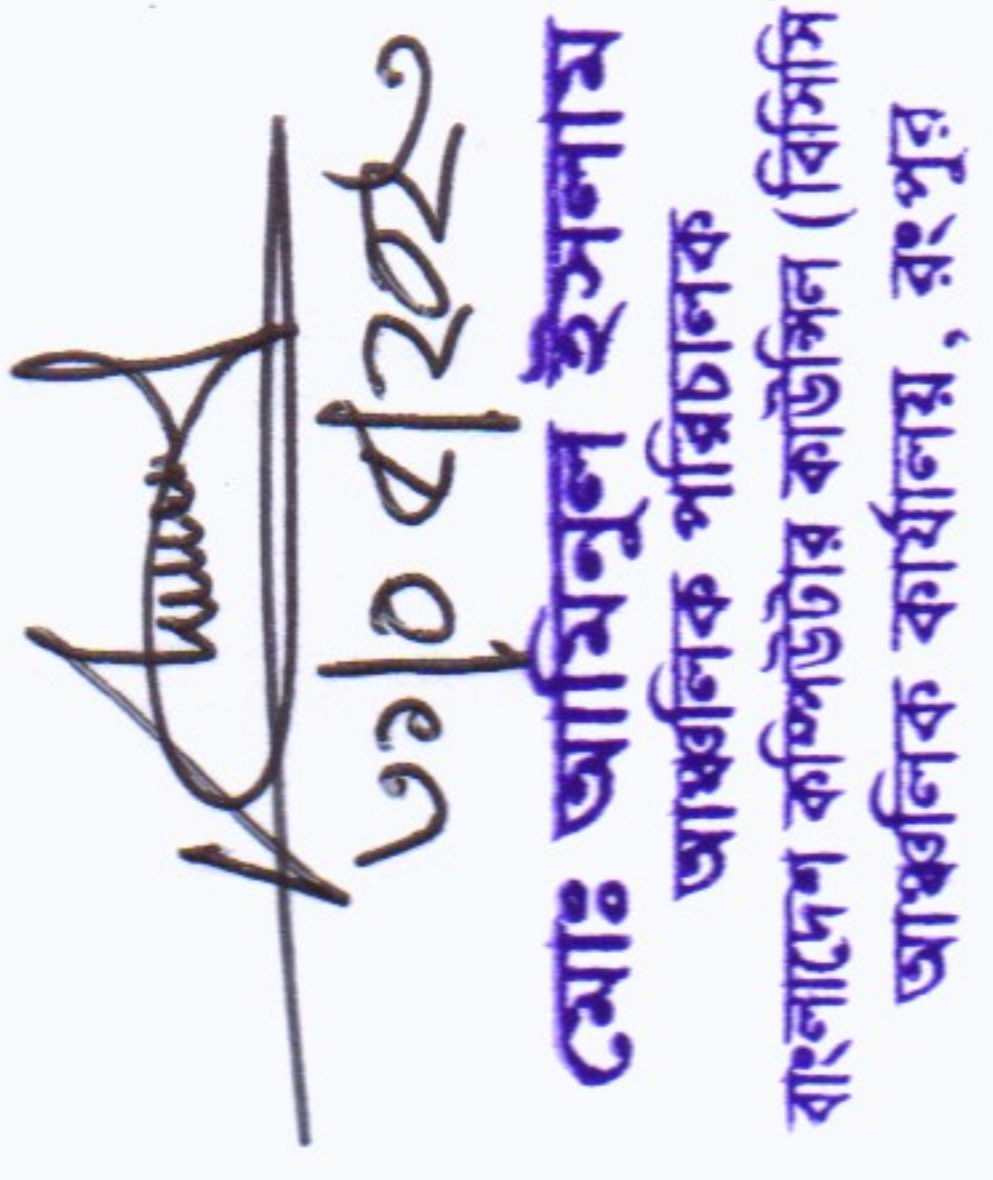 মোঃ আমিনুল ইসলাম
আঞ্চলিক পরিচালক
বাংলাদেশ কম্পিউটার কাউন্সিল (বিসিসি
আঞ্চলিক কার্যালয়, রংপুর